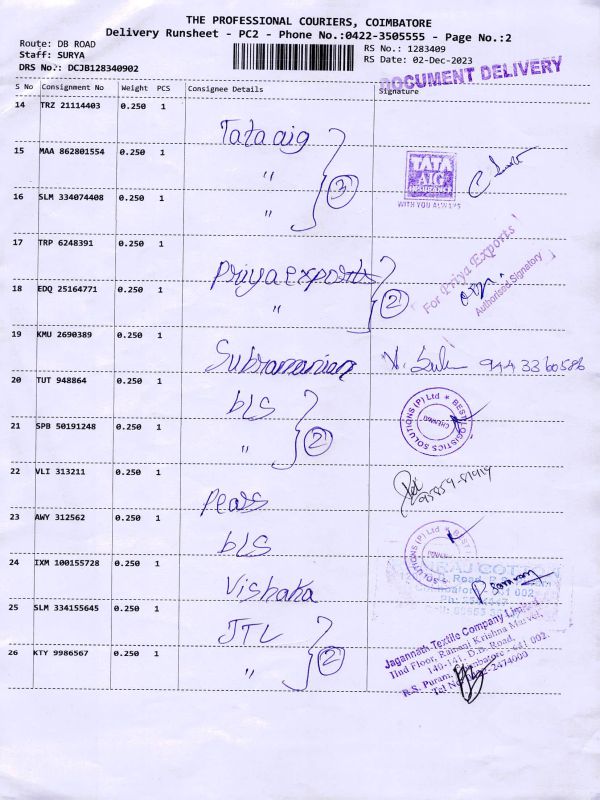 THE PROFESSIONAL COURIERS, COIMBATORE
Delivery Runsheet - PC2 - Phone No.:0422-3505555 - Page No.:2
Route: DB ROAD
RS No.: 1283409
Staff: SURYA
RS Date: 02-Dec-2023
DRS No.: DCJB128340902
DOCUMENT DELIVERY
S No Consignment No Weight PCS Consignee Details Signature
14 TRZ 21114403 0.250 1
Tata aig
15 MAA 862801554 0.250 1 "
TATA
AIG
INSURANCE
WITH YOU ALWAYS
16 SLM 334074408 0.250 1 " 3
17 TRP 6248391 0.250 1
Priya exports
For Priya Exports
Authorised Signatory
18 EDQ 25164771 0.250 1 " 2
19 KMU 2690389 0.250 1
Subramanian 944 33 60586
20 TUT 948864 0.250 1
bLS
BEST LOGISTICS SOLUTIONS (P) Ltd
21 SPB 50191248 0.250 1 " 2
22 VLI 313211 0.250 1
Pears
23 AWY 312562 0.250 1
bLS
24 IXM 100155728 0.250 1
Vishaka
25 SLM 334155645 0.250 1
JTL
Jagannath Textile Company Limited
IInd Floor, Ramani Krishna Marvel,
140-141, D.B. Road,
R.S. Puram, Coimbatore - 641 002.
26 KTY 9986567 0.250 1 " 2